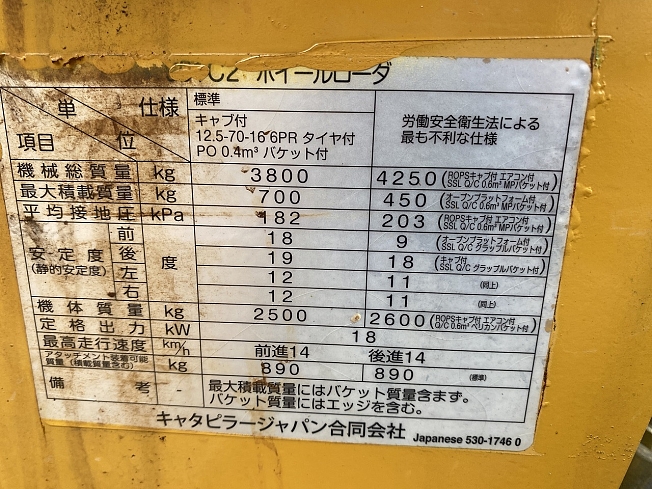 C2 ホイールローダ
単位 仕様 標準
項目 キャブ付 労働安全衛生法による
12.5-70-16 6PR タイヤ付 最も不利な仕様
PO 0.4m³ バケット付
機械総質量 kg 3800 4250 (ROPSキャブ付 エアコン付 SSL Q/C 0.6m³ MPバケット付)
最大積載質量 kg 700 450 (オープンプラットフォーム付 SSL Q/C 0.6m³ MPバケット付)
平均接地圧 kPa 182 203 (ROPSキャブ付 エアコン付 SSL Q/C 0.6m³ MPバケット付)
安定度 (静的安定度) 度
前 18 9 (オープンプラットフォーム付 SSL Q/C グラップルバケット付)
後 19 18 (キャブ付 SSL Q/C グラップルバケット付)
左 12 11 (同上)
右 12 11 (同上)
機体質量 kg 2500 2600 (ROPSキャブ付 エアコン付 Q/C 0.6m³ ペリカンバケット付)
定格出力 kW 18
最高走行速度 km/h 前進14 後進14
アタッチメント装着可能質量 (積載質量含む) kg 890 890 (標準)
備考 - 最大積載質量にはバケット質量含まず。
バケット質量にはエッジを含む。
キャタピラージャパン合同会社 Japanese 530-1746 0